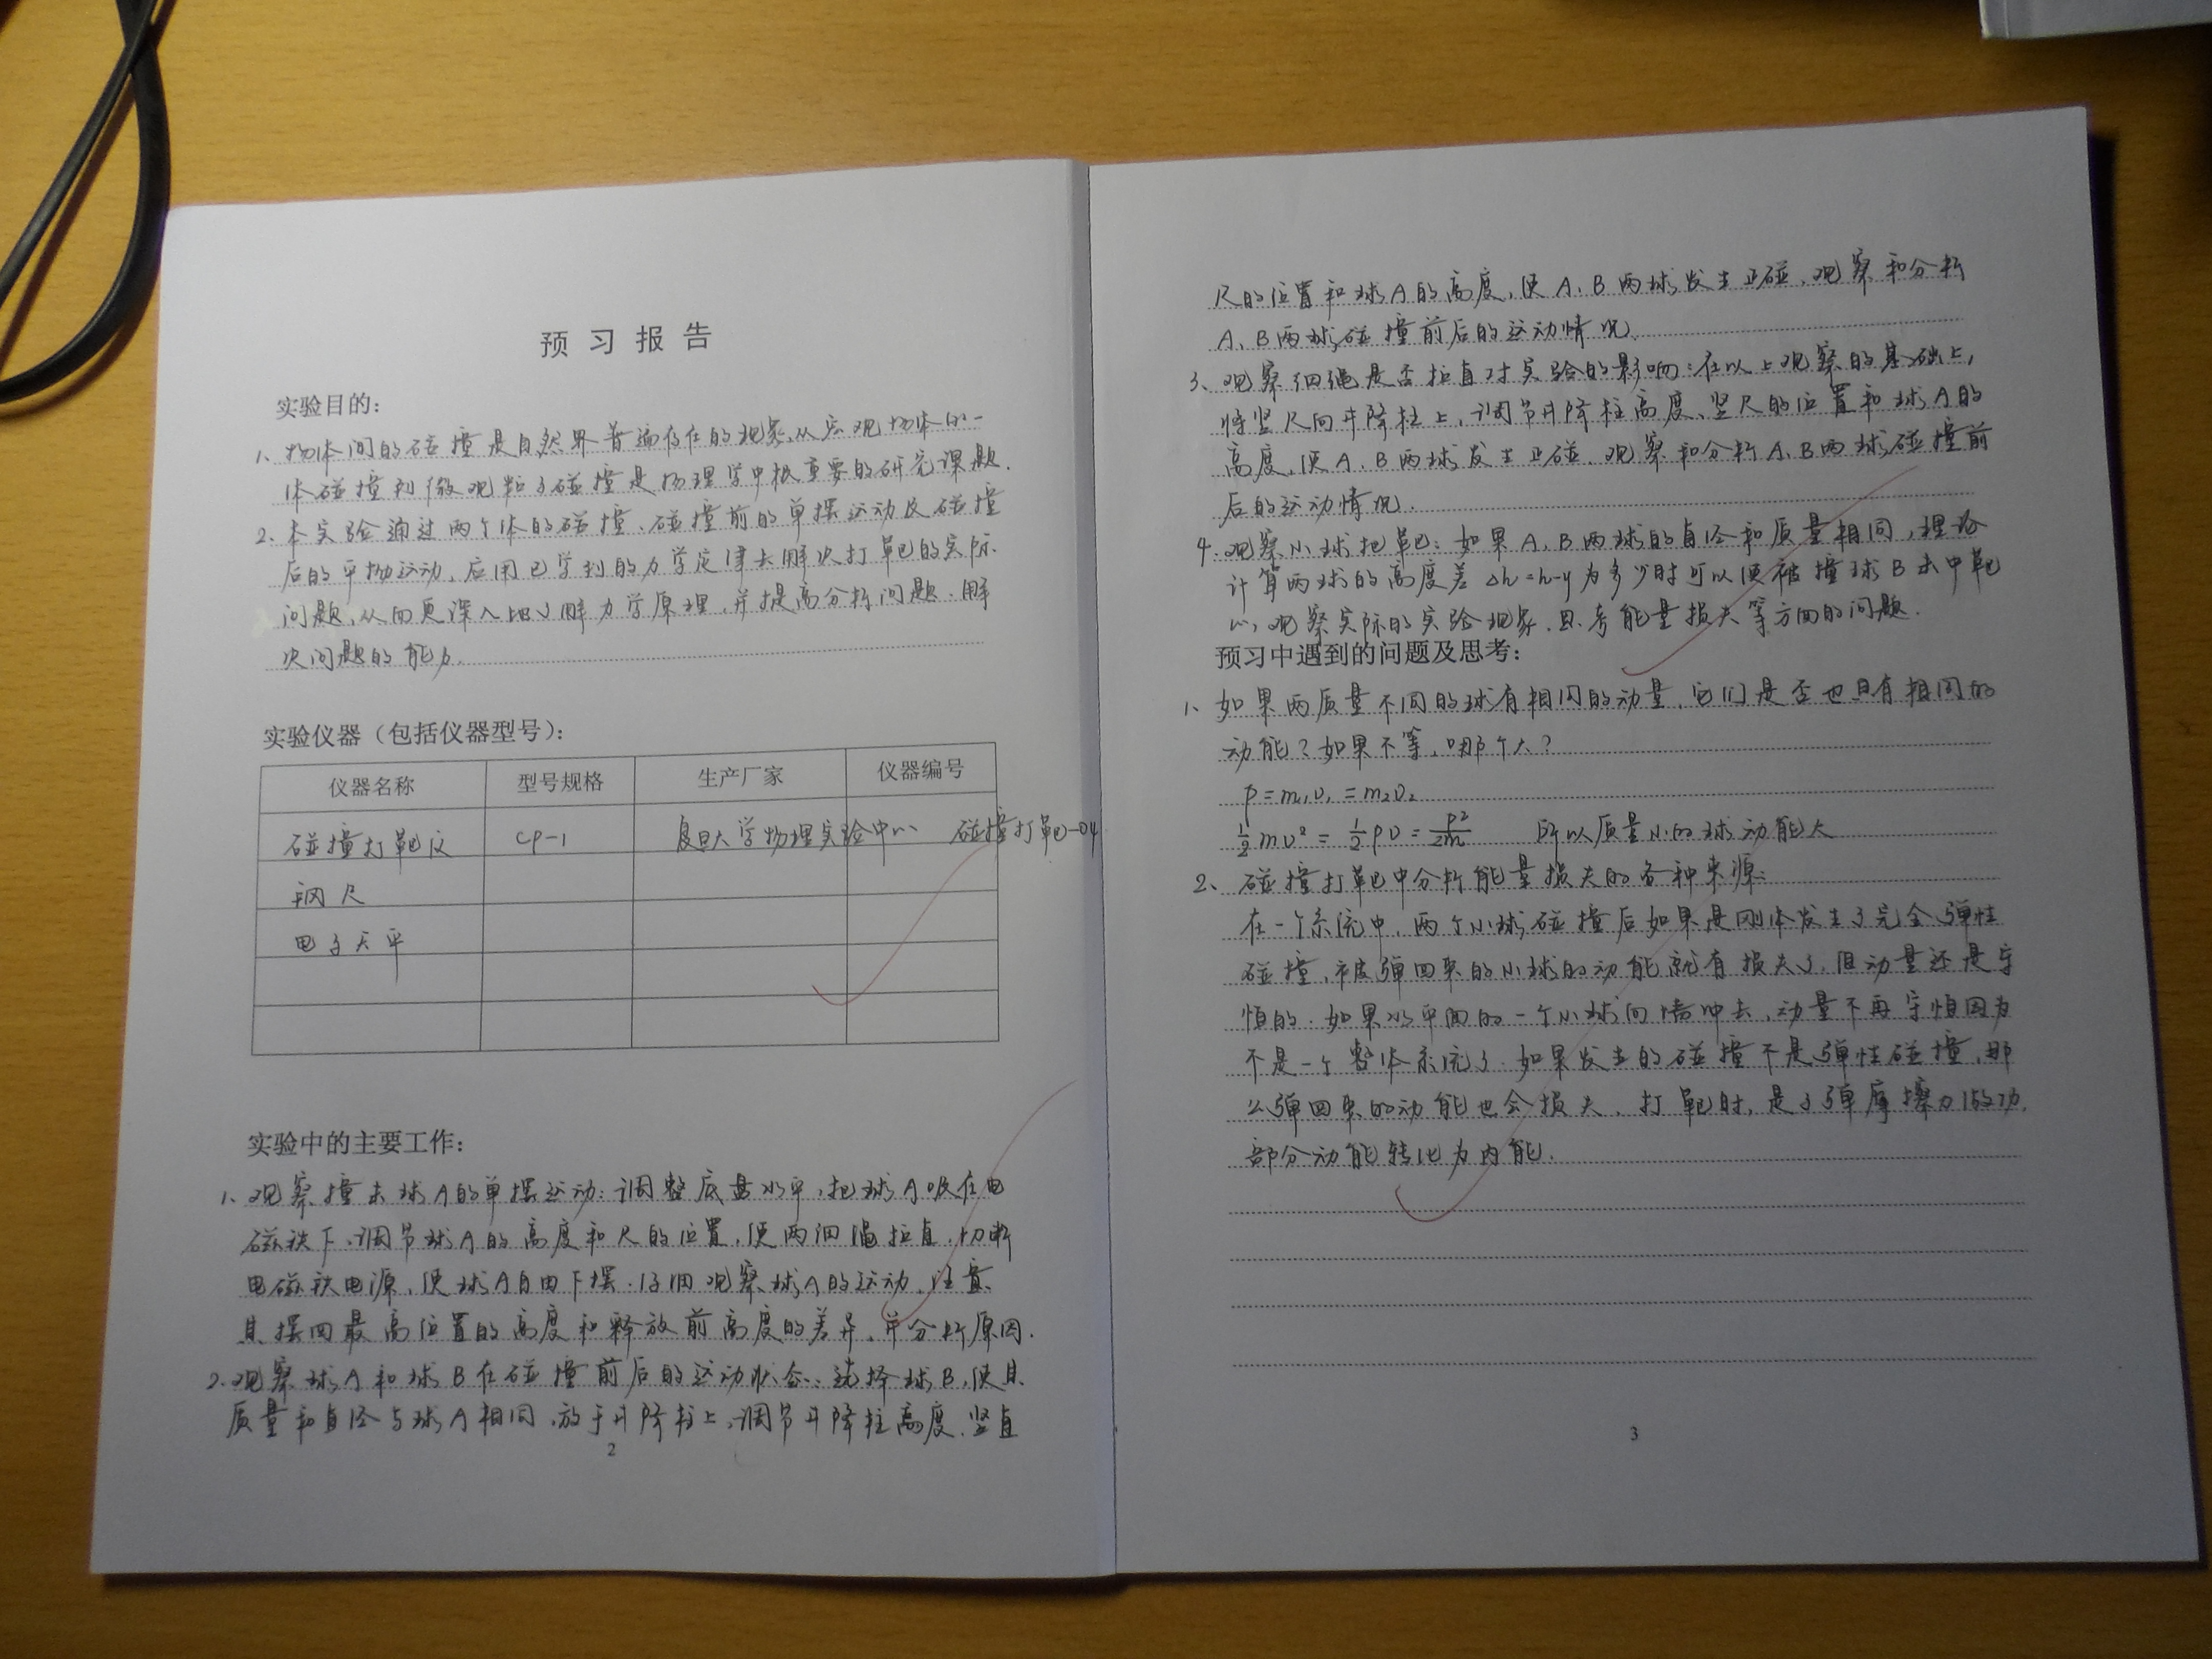 预习报告
实验目的:
1、物体间的碰撞是自然界普遍存在的现象,从宏观物体的一
体碰撞到微观粒子碰撞是物理学中极重要的研究课题.
2.本实验通过两个体的碰撞、碰撞前的单摆运动及碰撞
后的平抛运动,应用已学到的力学定律去解决打靶的实际
问题,从而更深入地了解力学原理,并提高分析问题、解
决问题的能力.
实验仪器(包括仪器型号):
仪器名称 型号规格 生产厂家 仪器编号
碰撞打靶仪 CP-1 复旦大学物理实验中心 碰撞打靶-04
钢尺
电子天平
实验中的主要工作:
1、观察撞击球A的单摆运动:调整底盘水平,把球A吸在电
磁铁下,调节球A的高度和尺的位置,使两细绳拉直,切断
电磁铁电源,使球A自由下摆.仔细观察球A的运动,注意
其摆回最高位置的高度和释放前高度的差异,并分析原因.
2.观察球A和球B在碰撞前后的运动状态:选择球B,使其
质量和直径与球A相同,放于升降柱上,调节升降柱高度、竖直
2
尺的位置和球A的高度,使A、B两球发生正碰,观察和分析
A、B两球碰撞前后的运动情况.
3、观察细绳是否拉直对实验的影响:在以上观察的基础上,
将竖尺向升降柱上,调节升降柱高度、竖尺的位置和球A的
高度,使A、B两球发生正碰.观察和分析A、B两球碰撞前
后的运动情况.
4.观察小球把靶:如果A、B两球的直径和质量相同,理论
计算两球的高度差Δh=h-y为多少时可以使被撞球B击中靶
心,观察实际的实验现象.思考能量损失等方面的问题.
预习中遇到的问题及思考:
1、如果两质量不同的球有相同的动量,它们是否也具有相同的
动能?如果不等,哪个大?
p=m₁υ₁=m₂υ₂
½mυ²=½pυ=p²/2m 所以质量小的球动能大
2、碰撞打靶中分析能量损失的各种来源:
在一个系统中,两个小球碰撞后如果是刚体发生了完全弹性
碰撞,被弹回来的小球的动能就有损失了,但动量还是守
恒的.如果水平面的一个小球向墙冲去,动量不再守恒因为
不是一个整体系统了.如果发生的碰撞不是弹性碰撞,那
么弹回来的动能也会损失.打靶时,是子弹摩擦力做功.
部分动能转化为内能.
3